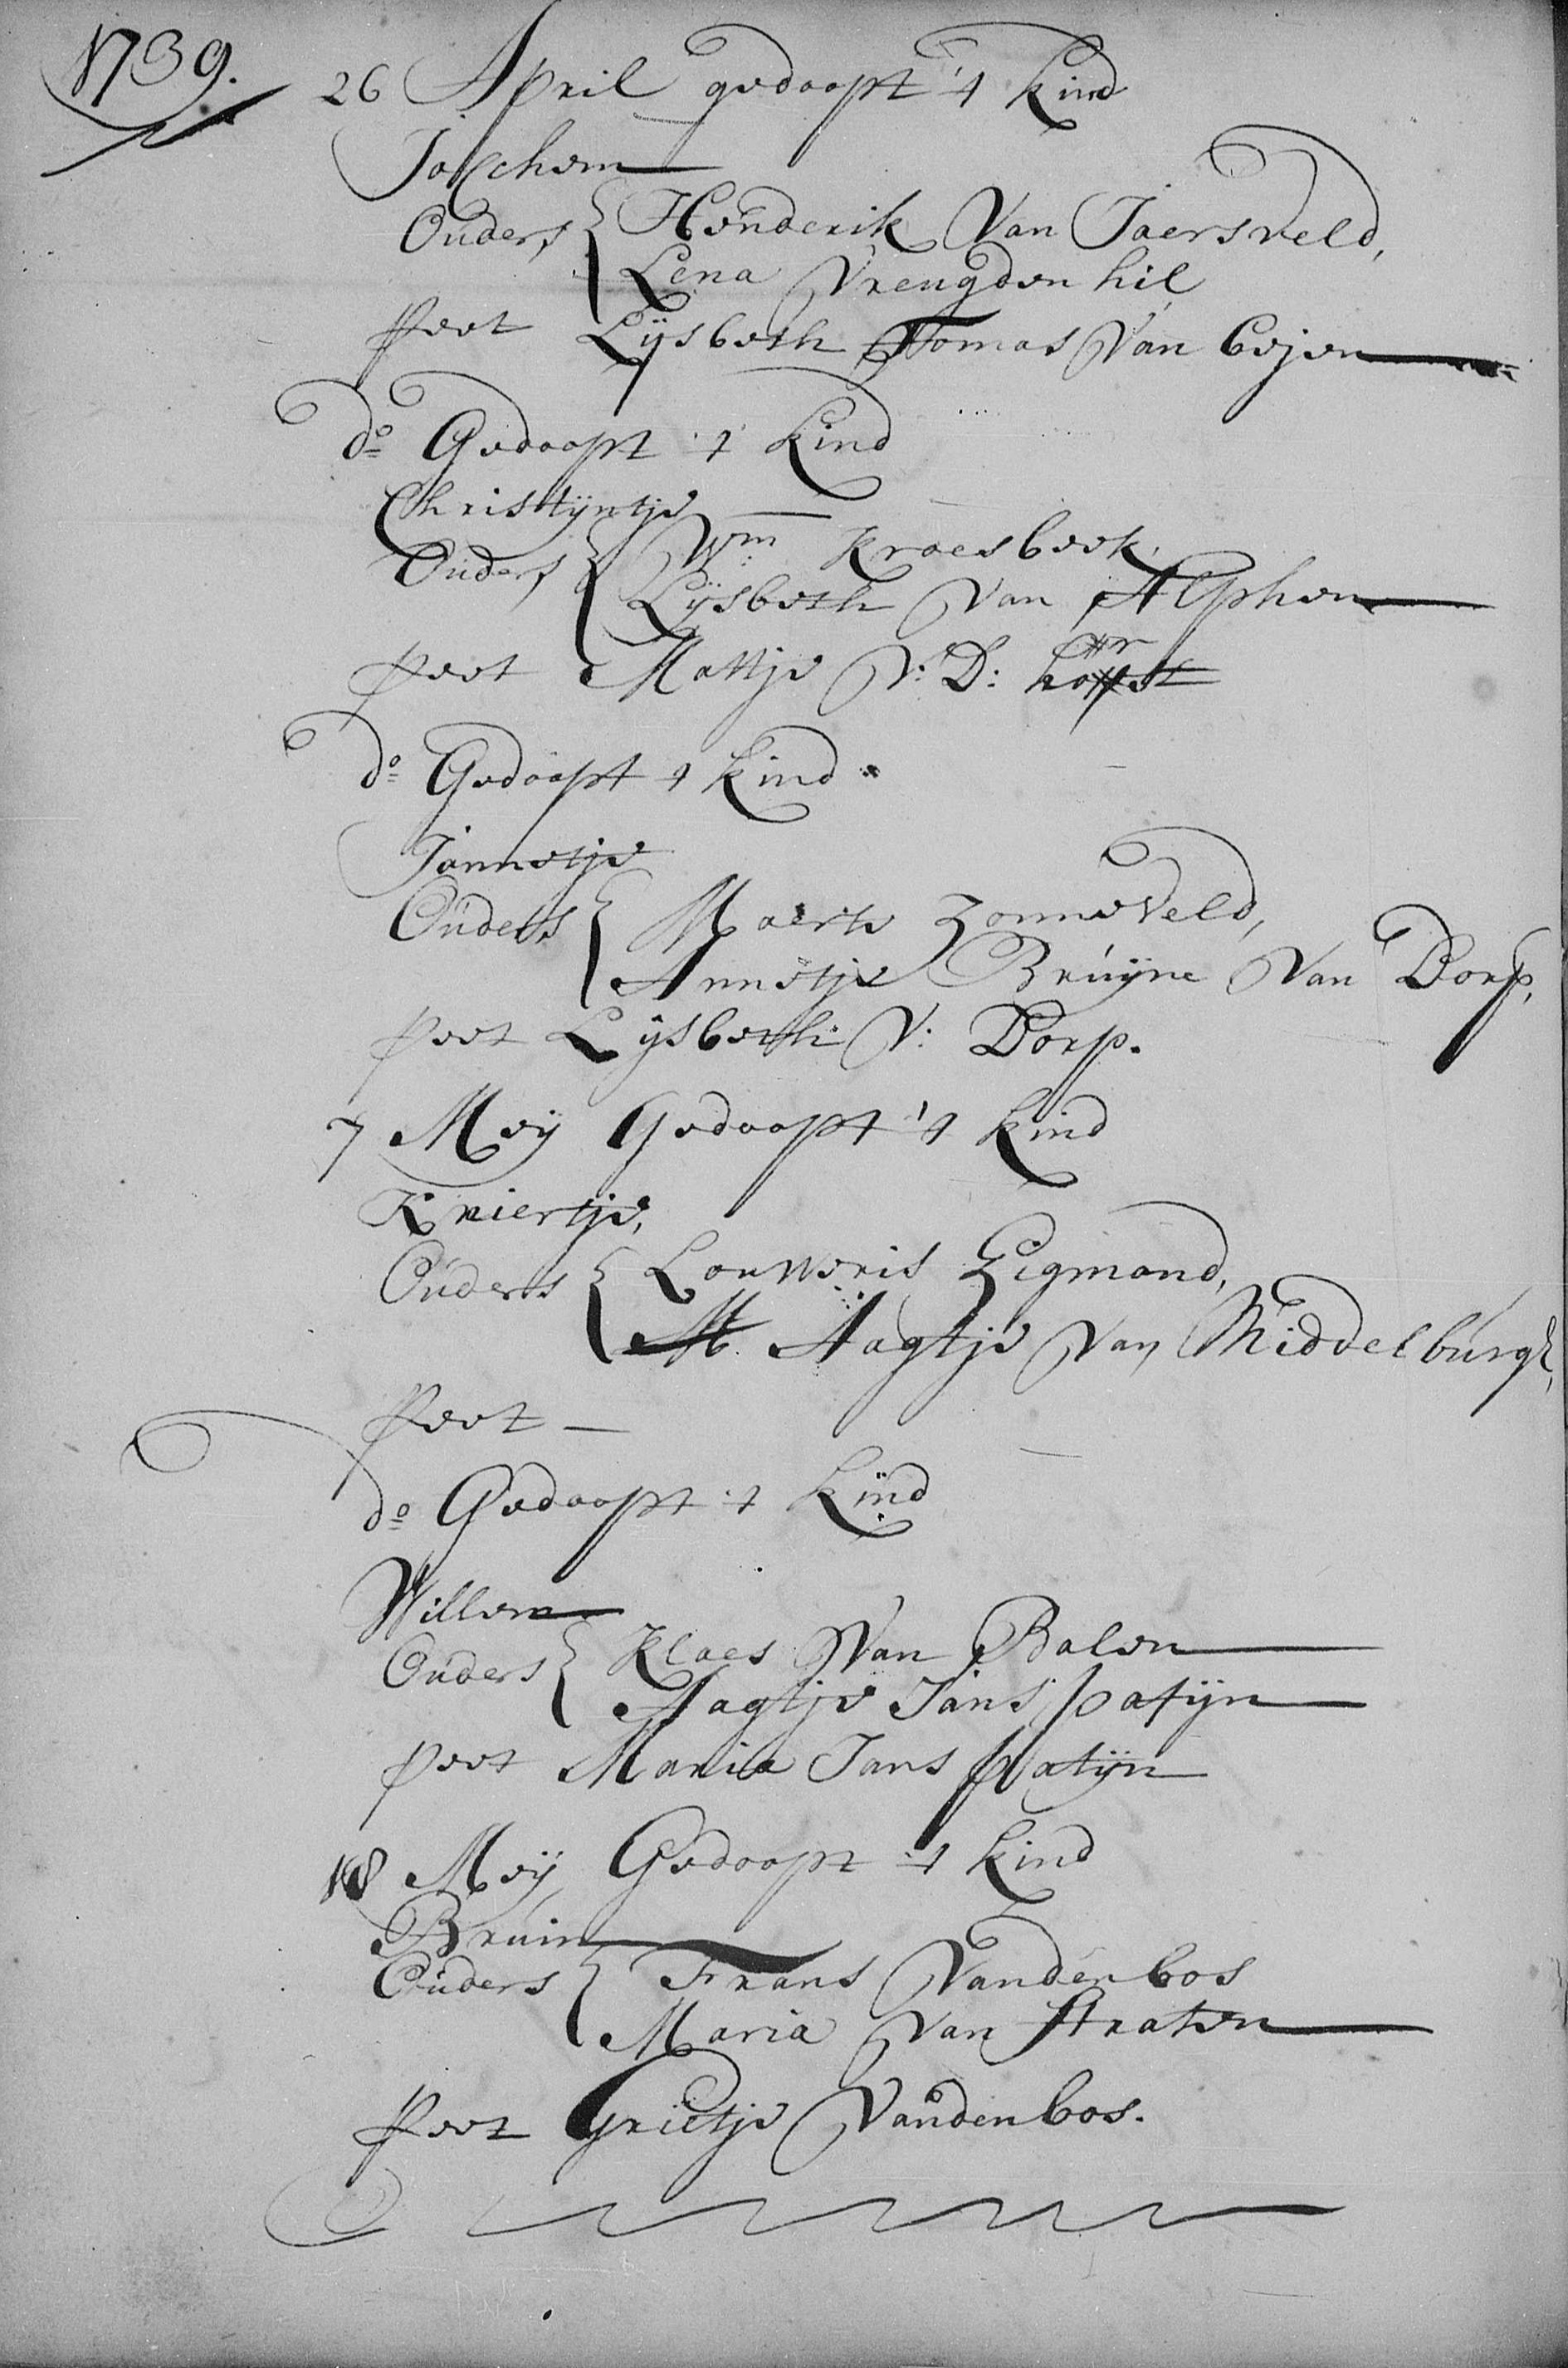 1739.
26 April gedoopt 't kind
Jochem
Ouders { Henderik Van Jaersveld,
Lena Vreugden hil
peet Lijsbeth Tomas Van Eijen
do Gedoopt 't kind
Christijntje
Ouders { Wm Kraesbeek,
Lijsbeth Van Alphen
peet Mattje V: D:
do Gedoopt t kind
Jannetje
Ouders { Maerte Zonneveld,
Annetje Bruijne Van Dorp,
peet Lijsbeth V: Dorp.
7 Meij Gedoopt 't kind
Kniertje,
Ouders { Louweris Zegmond,
Aagtje Van Middelburgh,
peet —
do Gedoopt 't kind
Willem
Ouders { Klaes Van Balen
Aagtje Jans patijn
peet Maria Jans patijn
18 Meij Gedoopt 't kind
Bruin
Ouders { Frans Vanden bos
Maria Van Straten
peet Grietje Vanden bos.